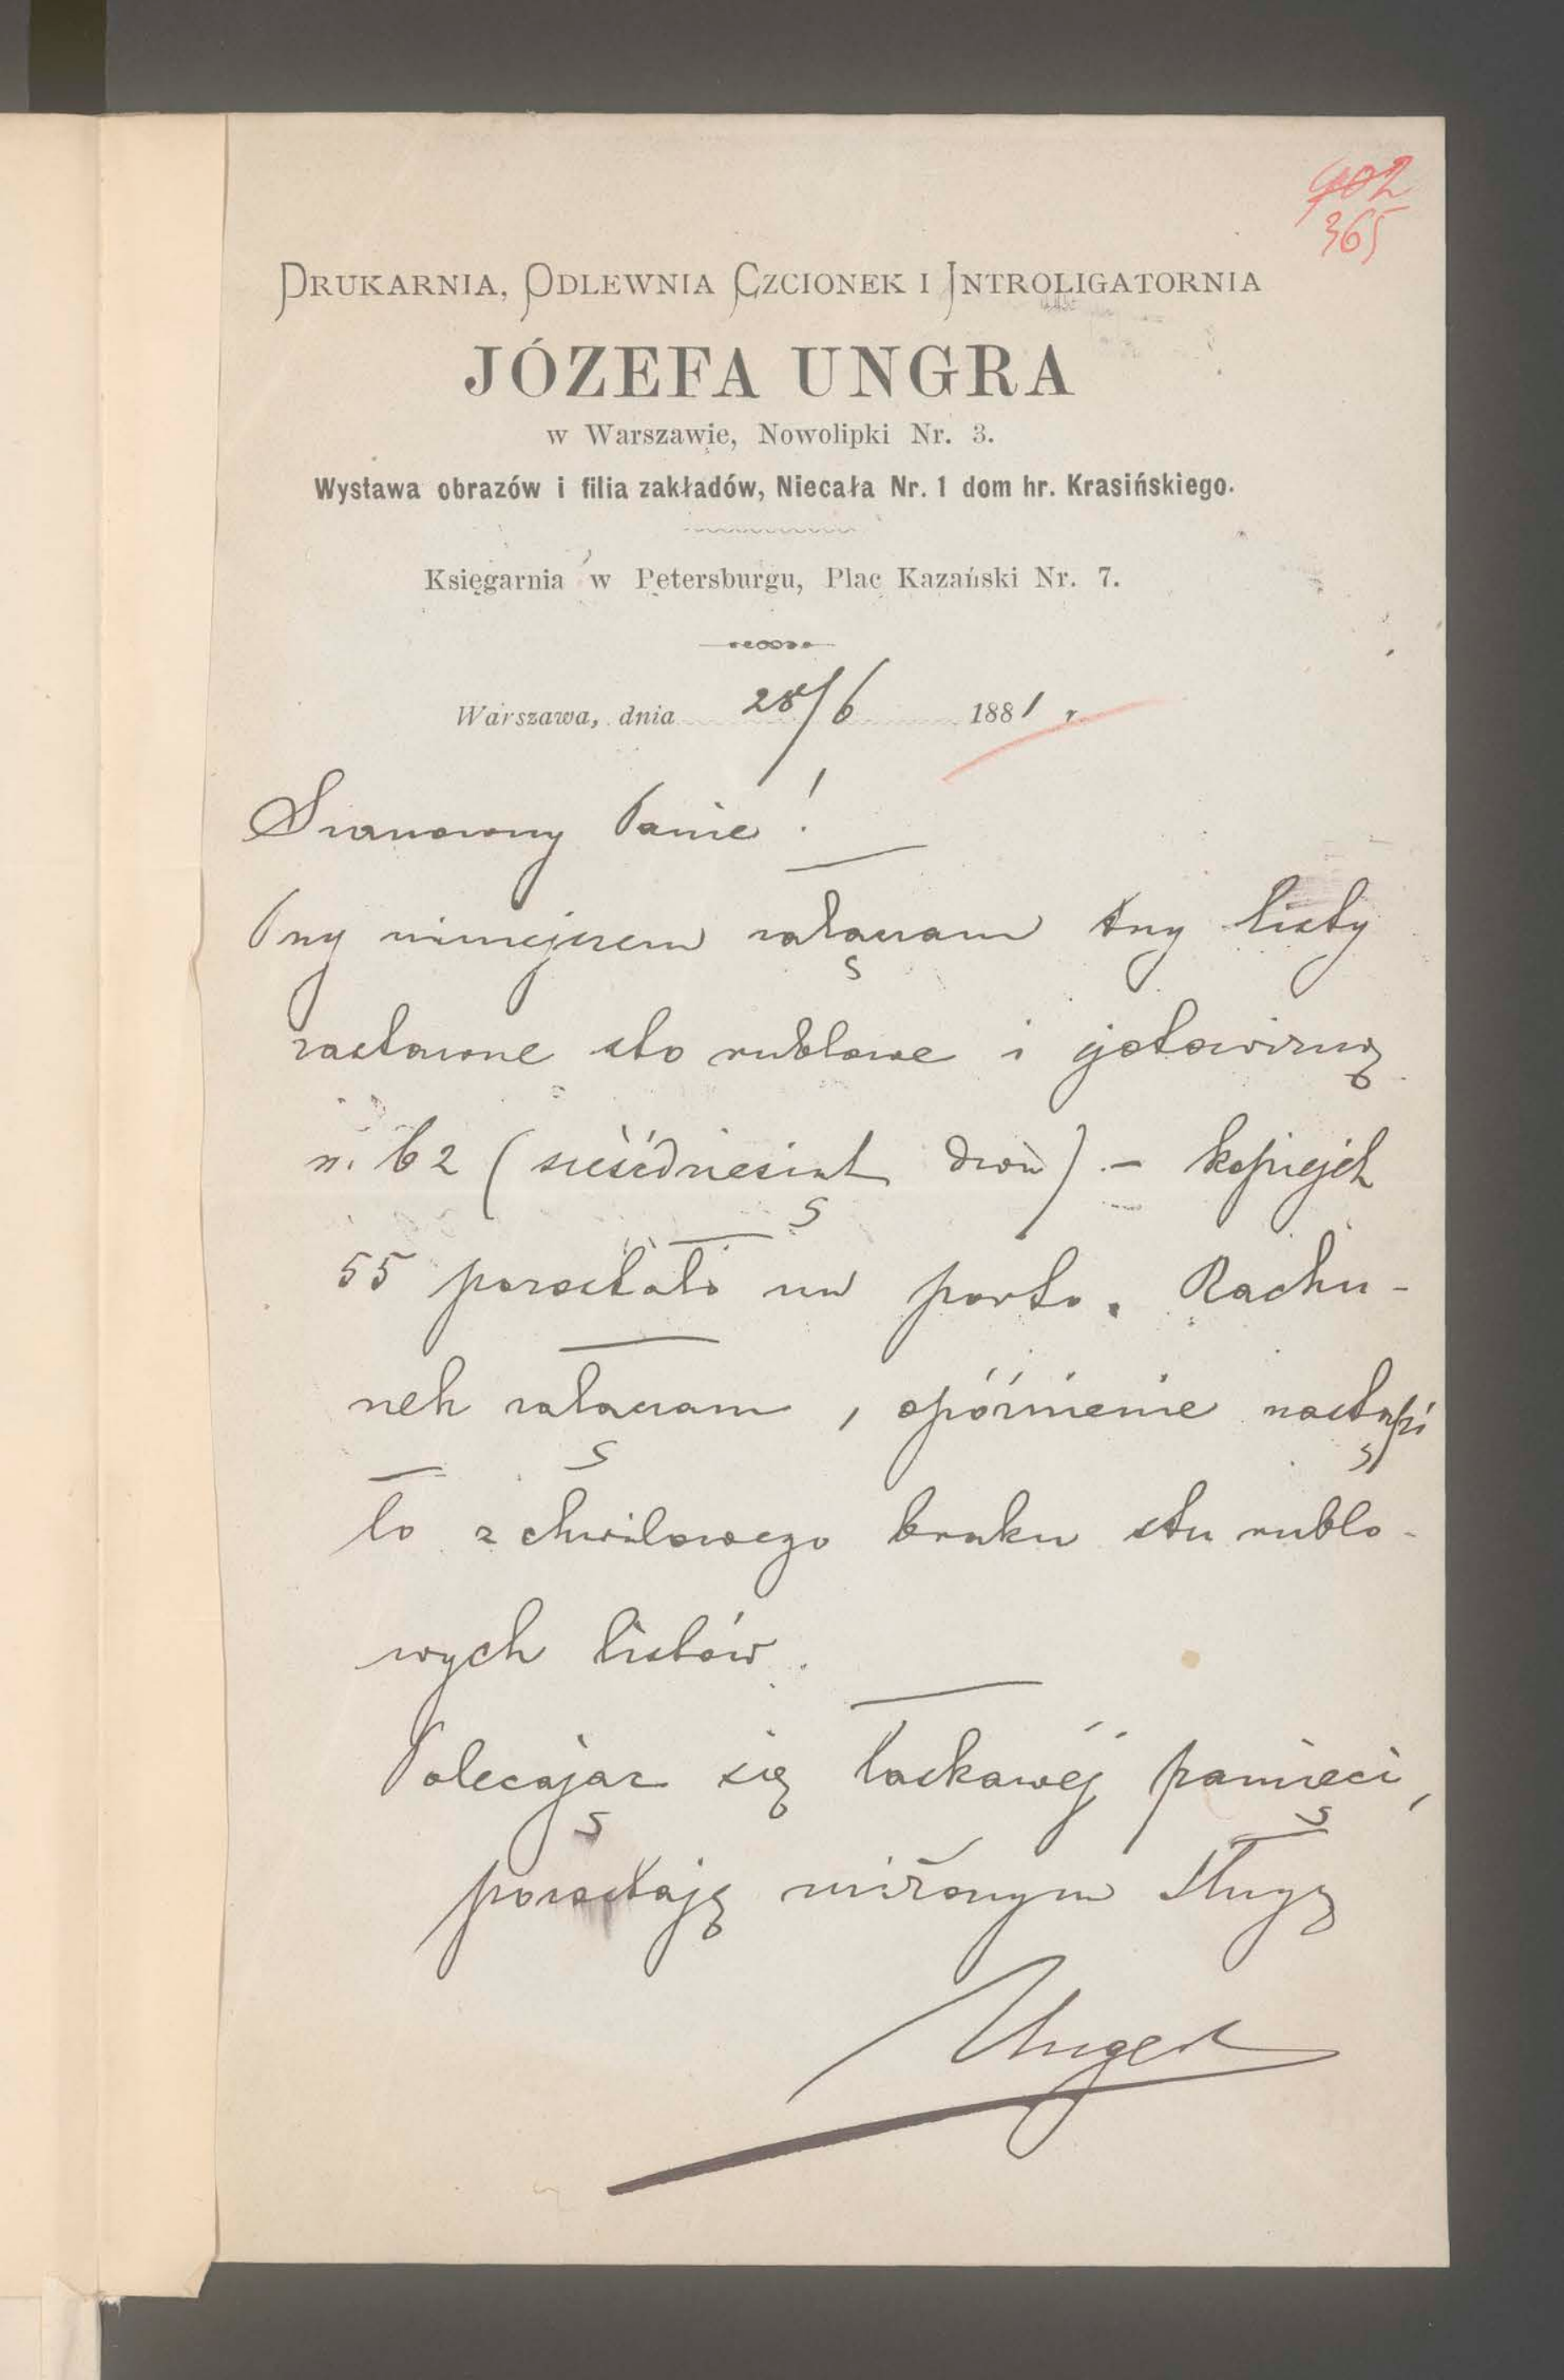 402
365
DRUKARNIA, ODLEWNIA CZCIONEK I INTROLIGATORNIA
JÓZEFA UNGRA
w Warszawie, Nowolipki Nr. 3.
Wystawa obrazów i filia zakładów, Niecała Nr. 1 dom hr. Krasińskiego.
Księgarnia w Petersburgu, Plac Kazański Nr. 7.
Warszawa, dnia 28/6 1881 r.
Szanowny Panie!
Przy niniejszem załączam trzy listy
zastawne sto rublowe i gotowizną
rs. 62 (sześćdziesiąt dwa) – kopiejek
55 pozostało na porto. Rachu-
nek załączam, opóźnienie nastąpi
ło z chwilowego braku stu rublo-
wych listów.
Polecając się łaskawéj pamięci,
pozostaję uniżonym sługą
Unger